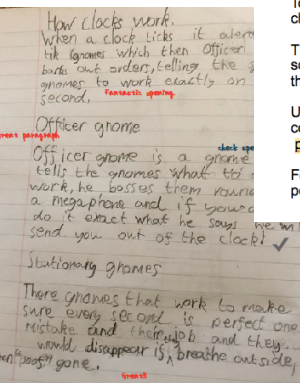 How clocks work.
When a clock ticks it alert
tik gnomes which then Officer
barks out orders, telling the
gnomes to work exactly on
second.
Fantastic opening
Officer gnome
great paragraph
check spe
Officer gnome is a gnome
tells the gnomes what to
work, he bosses them
a megaphone and if you
do it exact what he says he
send you out of the clock!
Stationary gnomes
There gnomes that work to make
sure every second is perfect one
mistake and their job and they
would disappear if breathe outside,
"poof" gone.
Great!!